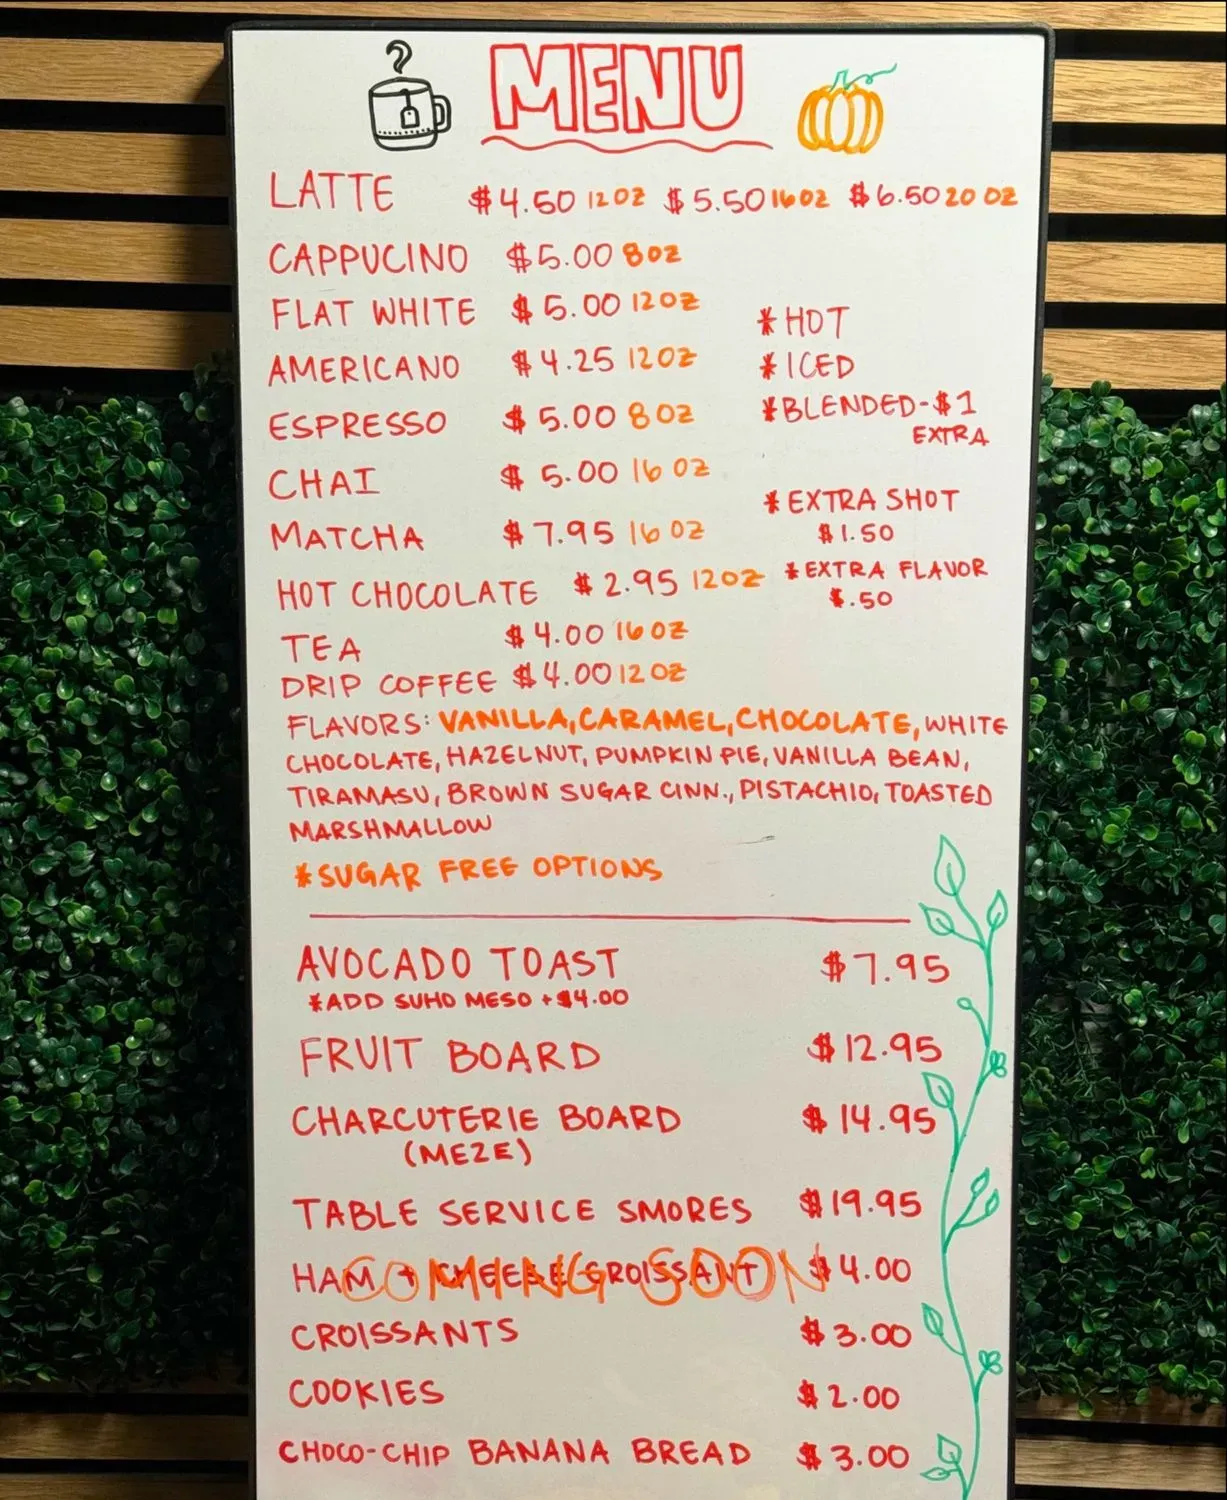 MENU
LATTE $4.50 12OZ $5.50 16OZ $6.50 20 OZ
CAPPUCINO $5.00 8OZ
FLAT WHITE $5.00 12OZ
*HOT
AMERICANO $4.25 12OZ
*ICED
*BLENDED-$1
EXTRA
ESPRESSO $5.00 8OZ
CHAI $5.00 16 OZ
*EXTRA SHOT
$1.50
MATCHA $7.95 16 OZ
*EXTRA FLAVOR
$.50
HOT CHOCOLATE $2.95 12OZ
TEA $4.00 16OZ
DRIP COFFEE $4.00 12OZ
FLAVORS: VANILLA, CARAMEL, CHOCOLATE, WHITE
CHOCOLATE, HAZELNUT, PUMPKIN PIE, VANILLA BEAN,
TIRAMASU, BROWN SUGAR CINN., PISTACHIO, TOASTED
MARSHMALLOW
*SUGAR FREE OPTIONS
AVOCADO TOAST $7.95
*ADD SUHO MESO + $4.00
FRUIT BOARD $12.95
CHARCUTERIE BOARD $14.95
(MEZE)
TABLE SERVICE SMORES $19.95
HAM + CHEESE CROISSANT $4.00
COMING SOON
CROISSANTS $3.00
COOKIES $2.00
CHOCO-CHIP BANANA BREAD $3.00